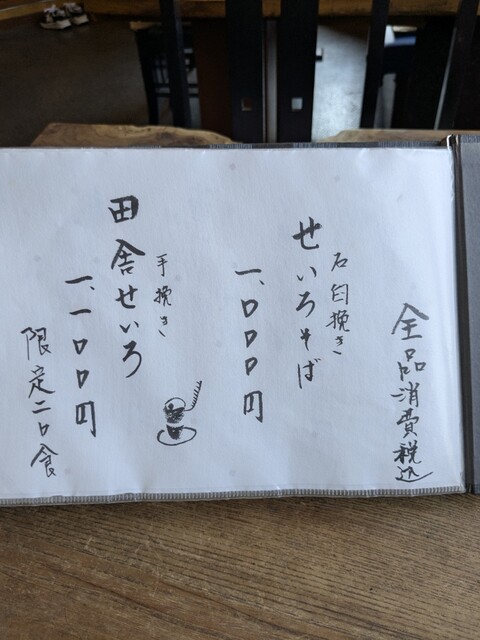 全品消費税込
石臼挽き
せいろそば
一、〇〇〇円
手挽き
田舎せいろ
一、一〇〇円
限定二〇食